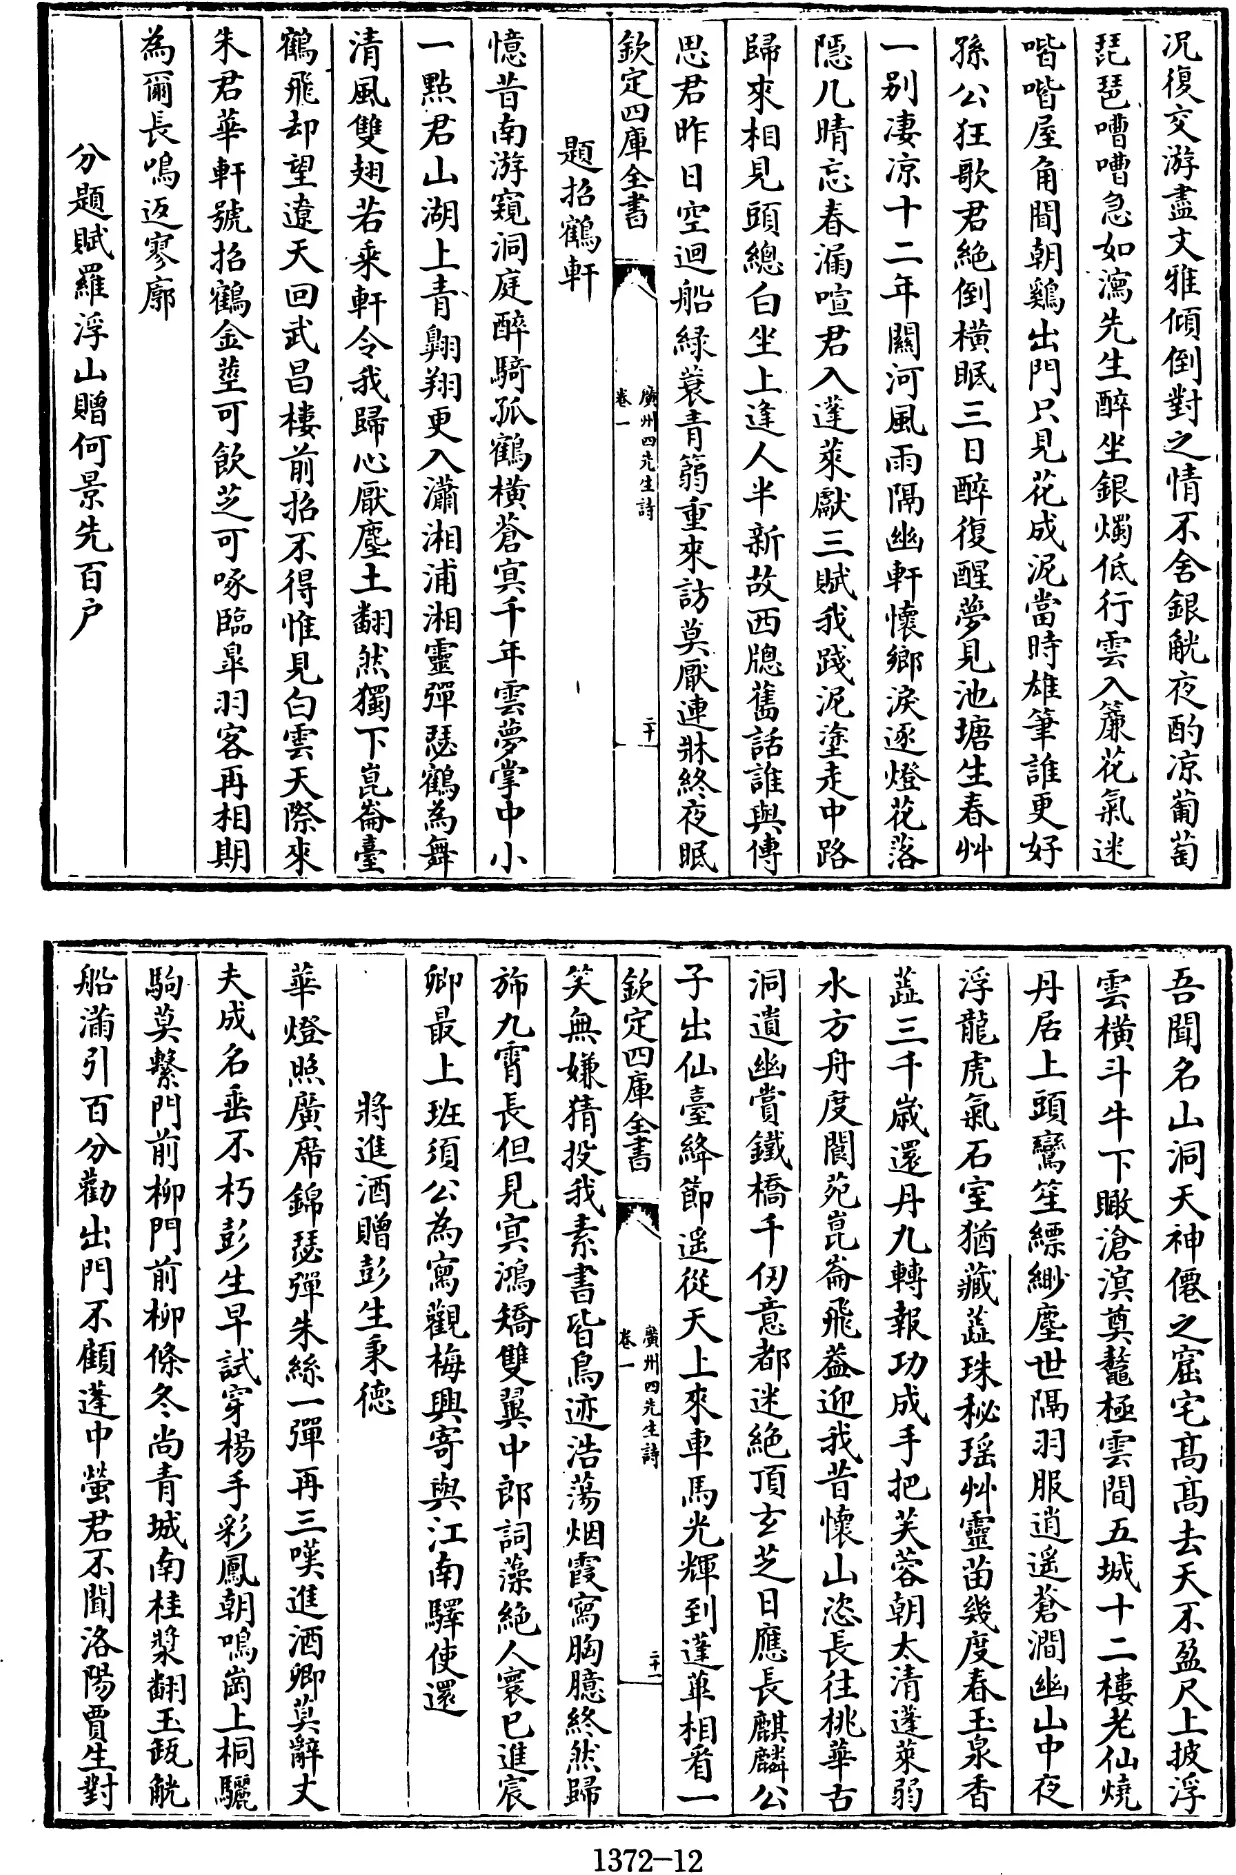 况復交游盡文雅傾倒對之情不舍銀觥夜酌凉葡萄
琵琶嘈嘈急如瀉先生醉坐銀燭低行雲入簾花氣迷
喈喈屋角聞朝鷄出門只見花成泥當時雄筆誰更好
孫公狂歌君絶倒横眠三日醉復醒夢見池塘生春艸
一别凄凉十二年關河風雨隔幽軒懷鄉淚逐燈花落
隠几晴忘春漏喧君入蓬萊獻三賦我踐泥塗走中路
歸來相見頭總白坐上逢人半新故西牕舊話誰與傳
思君昨日空迴船緑蓑青篛重來訪莫厭連牀終夜眠
欽定四庫全書
廣州四先生詩
卷一
二十
題招鶴軒
憶昔南游窺洞庭醉騎孤鶴横蒼㝠千年雲夢掌中小
一點君山湖上青翱翔更入瀟湘浦湘靈彈瑟鶴為舞
清風雙翅若乘軒令我歸心厭塵土翻然獨下崑崙臺
鶴飛却望遼天回武昌樓前招不得惟見白雲天際來
朱君華軒號招鶴金莖可飲芝可啄臨臯羽客再相期
為爾長鳴返寥廓
分題賦羅浮山贈何景先百户
吾聞名山洞天神僊之窟宅髙髙去天不盈尺上披浮
雲横斗牛下瞰滄溟奠鼇極雲間五城十二樓老仙燒
丹居上頭鸞笙縹緲塵世隔羽服逍遥蒼澗幽山中夜
浮龍虎氣石室猶藏蕋珠秘瑶艸靈苗幾度春玉泉香
蕋三千歲還丹九轉報功成手把芙蓉朝太清蓬萊弱
水方舟度閬苑崑崙飛葢迎我昔懷山恣長往桃華古
洞遺幽賞鐵橋千仭意都迷絶頂玄芝日應長麒麟公
子出仙臺絳節遥從天上來車馬光輝到蓬蓽相看一
欽定四庫全書
廣州四先生詩
卷一
二十一
笑無嫌猜投我素書皆鳥迹浩蕩烟霞寫胸臆終然歸
斾九霄長但見㝠鴻矯雙翼中郎詞藻絶人寰已進宸
卿最上班須公為寫觀梅興寄與江南驛使還
將進酒贈彭生秉德
華燈照廣席錦瑟彈朱絲一彈再三嘆進酒卿莫辭丈
夫成名垂不朽彭生早試穿楊手彩鳳朝鳴崗上桐驪
駒莫繫門前柳門前柳條冬尚青城南桂槳翻玉瓶觥
船滿引百分勸出門不顧蓬中螢君不聞洛陽賈生對
1372-12